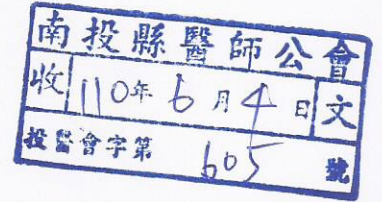 南投縣醫師公會
收 110年6月4日 文
投醫會字第 605 號